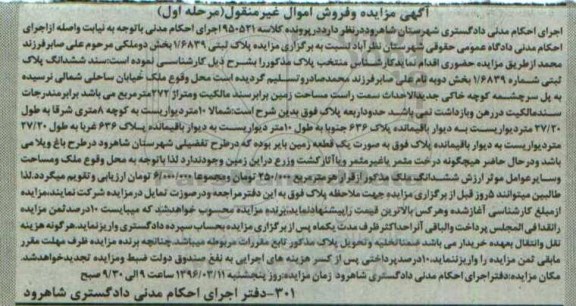 آگهی مزایده وفروش اموال غیرمنقول(مرحله اول)
اجرای احکام مدنی دادگستری شهرستان شاهروددرنظر دارددرپرونده کلاسه ۹۵۰۵۳۱اجرای احکام مدنی باتوجه به نیابت واصله ازاجرای
احکام مدنی دادگاه عمومی حقوقی شهرستان نظرآباد نسبت به برگزاری مزایده پلاک ثبتی ۱/۶۸۳۹بخش دوملکی مرحوم علی صابرفرزند
محمد ازطریق مزایده حضوری اقدام نمایدکارشناس منتخب پلاک مذکوررا بشرح ذیل کارشناسی نموده است:سند ششدانگ پلاک
ثبتی شماره ۱/۶۸۳۹ بخش دوبه نام علی صابرفرزند محمدصادروتسلیم گردیده است محل وقوع ملک خیابان ساحلی شمالی نرسیده
به پل سرچشمه کوچه خاکی جدیدالاحداث سمت راست مساحت زمین برابرسند مالکیت ومتراژ ۲۷۲مترمربع می باشد برابرمندرجات
سندمالکیت دررهن وبازداشت نمی باشد حدوداربعه پلاک فوق بدین شرح است:شمالا ۱۰متردیواریست به کوچه ۸متری شرقا به طول
۲۷/۲۰ متردیواریست به دیوار باقیمانده پلاک ۶۳۶ جنوبا به طول ۱۰متر دیواریست به دیوار باقیمانده پلاک ۶۳۶ غربا به طول ۲۷/۲۰
متردیواریست به دیوار باقیمانده پلاک فوق به صورت یک قطعه زمین بایر بوده که درطرح تفضیلی شهرستان شاهرود درطرح باغ ویلا می
باشد ودرحال حاضر هیچگونه درخت مثمر یاغیرمثمر ویاآثارکشت وزرع دراین زمین وجودندارد لذا باتوجه به محل وقوع ملک ومساحت
وسایرعوامل موثر ارزش ششدانگ ملک مذکورازقرار هرمترمربع تومان ومجموعا تومان ارزیابی وتقویم میگردد.لذا
طالبین میتوانند ۵روز قبل از برگزاری مزایده جهت ملاحظه پلاک فوق به این دفترمراجعه ودرصورت تمایل درمزایده شرکت نمایند.مزایده
ازمبلغ کارشناسی آغازشده وهرکس بالاترین قیمت راپیشنهادنماید برنده مزایده محسوب خواهدشد که میبایست ۱۰درصدثمن مزایده
رانقدا فی المجلس پرداخت والباقی آنراحداکثر ظرف مدت یکماه پس از برگزاری مزایده بحساب سپرده دادگستری واریزنماید.هرگونه هزینه
نقل وانتقال بعهده خریدار می باشد ضمناتخلیه وتحویل پلاک مذکور تابع مقررات مربوطه میباشد چنانچه برنده مزایده ظرف مهلت مقرر
مابقی ثمن مزایده را واریزننماید،۱۰درصدپرداختی پس از کسر هزینه های اجرایی به نفع صندوق دولت ضبط ومزایده تجدیدخواهدشد.
مکان مزایده:دفتراجرای احکام مدنی دادگستری شاهرود زمان مزایده:روز پنجشنبه ۱۳۹۶/۰۳/۱۱ ساعت ۹الی ۹/۳۰ صبح
۳۰۱-دفتر اجرای احکام مدنی دادگستری شاهرود